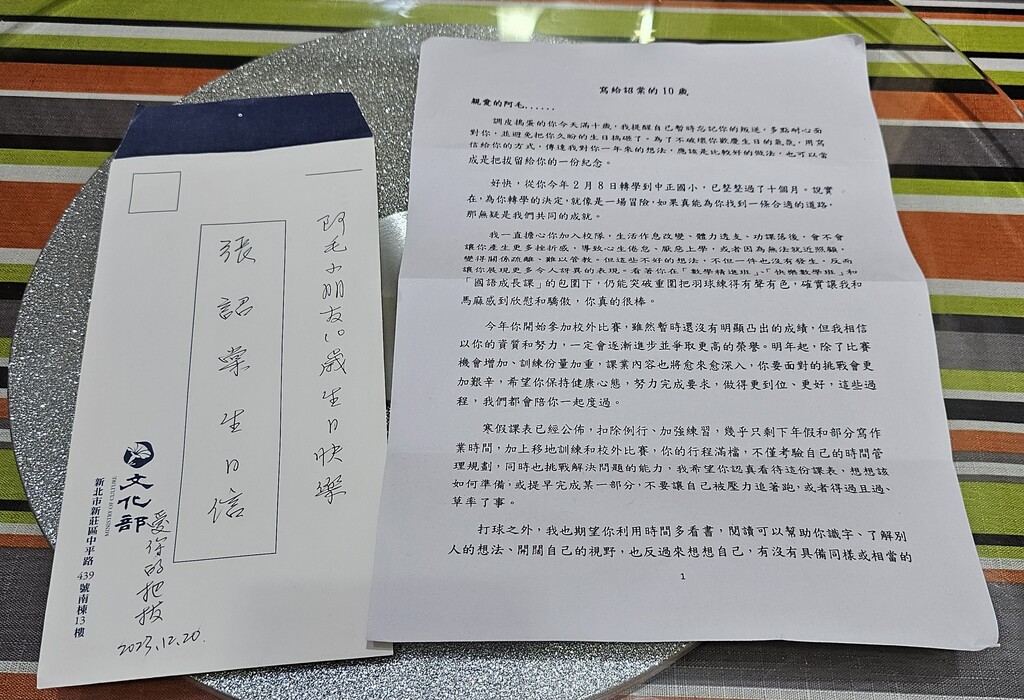 阿毛小朋友10歲生日快樂
張詔棠生日信
文化部
MINISTRY OF CULTURE
新北市新莊區中平路439號南棟13樓
愛你的把拔
2023.12.20.
寫給詔棠的10歲
親愛的阿毛......
調皮搗蛋的你今天滿十歲，我提醒自己暫時忘記你的叛逆，多點耐心面
對你，並避免把你久盼的生日搞砸了。為了不破壞你歡慶生日的氣氛，用寫
信給你的方式，傳達我對你一年來的想法，應該是比較好的做法，也可以當
成是把拔留給你的一份紀念。
好快，從你今年2月8日轉學到中正國小，已整整過了十個月。說實
在，為你轉學的決定，就像是一場冒險，如果真能為你找到一條合適的道路，
那無疑是我們共同的成就。
我一直擔心你加入校隊，生活作息改變、體力透支、功課落後，會不會
讓你產生更多挫折感，導致心生倦怠、厭惡上學，或者因為無法就近照顧，
變得關係疏離、難以管教。但這些不好的想法，不但一件也沒有發生，反而
讓你展現更多令人訝異的表現。看著你在「數學精進班」、「快樂數學班」和
「國語成長課」的包圍下，仍能突破重圍把羽球練得有聲有色，確實讓我和
馬麻感到欣慰和驕傲，你真的很棒。
今年你開始參加校外比賽，雖然暫時還沒有明顯凸出的成績，但我相信
以你的資質和努力，一定會逐漸進步並爭取更高的榮譽。明年起，除了比賽
機會增加、訓練份量加重，課業內容也將愈來愈深入，你要面對的挑戰會更
加艱辛，希望你保持健康心態，努力完成要求，做得更到位、更好，這些過
程，我們都會陪你一起度過。
寒假課表已經公佈，扣除例行、加強練習，幾乎只剩下年假和部分寫作
業時間，加上移地訓練和校外比賽，你的行程滿檔，不僅考驗自己的時間管
理規劃，同時也挑戰解決問題的能力，我希望你認真看待這份課表，想想該
如何準備，或提早完成某一部分，不要讓自己被壓力追著跑，或者得過且過、
草率了事。
打球之外，我也期望你利用時間多看書，閱讀可以幫助你識字、了解別
人的想法、開闊自己的視野，也反過來想想自己，有沒有具備同樣或相當的
1